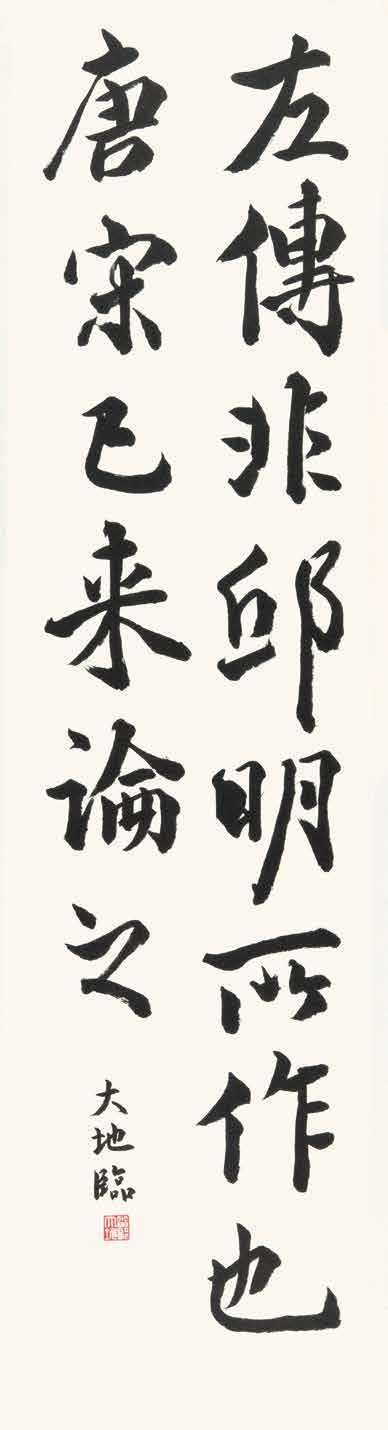 左傳非邱明所作也
唐宋已来論之
大地臨